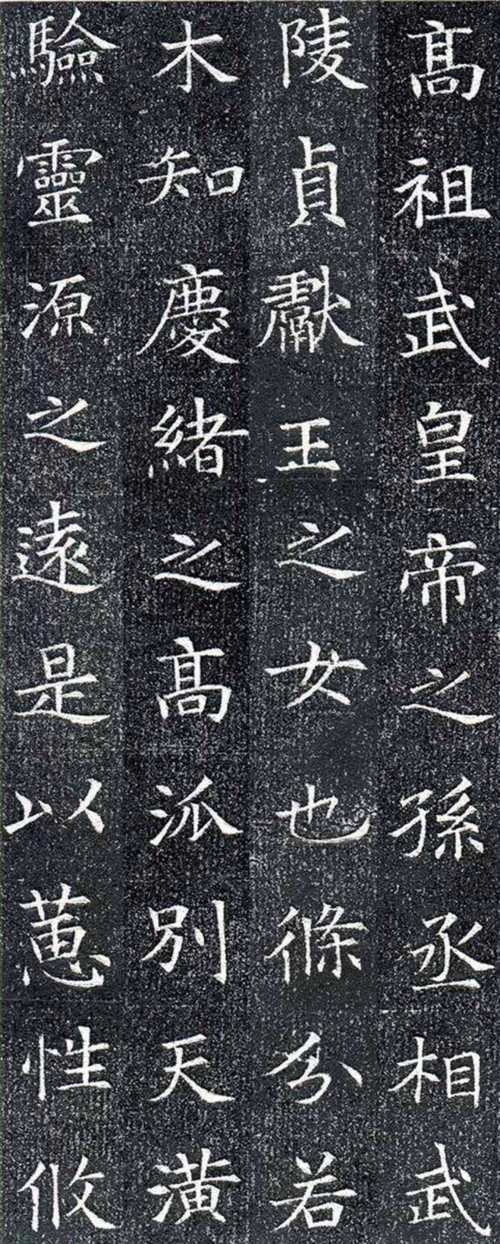 髙祖武皇帝之孫丞相武
陵貞獻王之女也條分若
木知慶緒之髙泒別天潢
驗靈源之遠是以蕙性攸